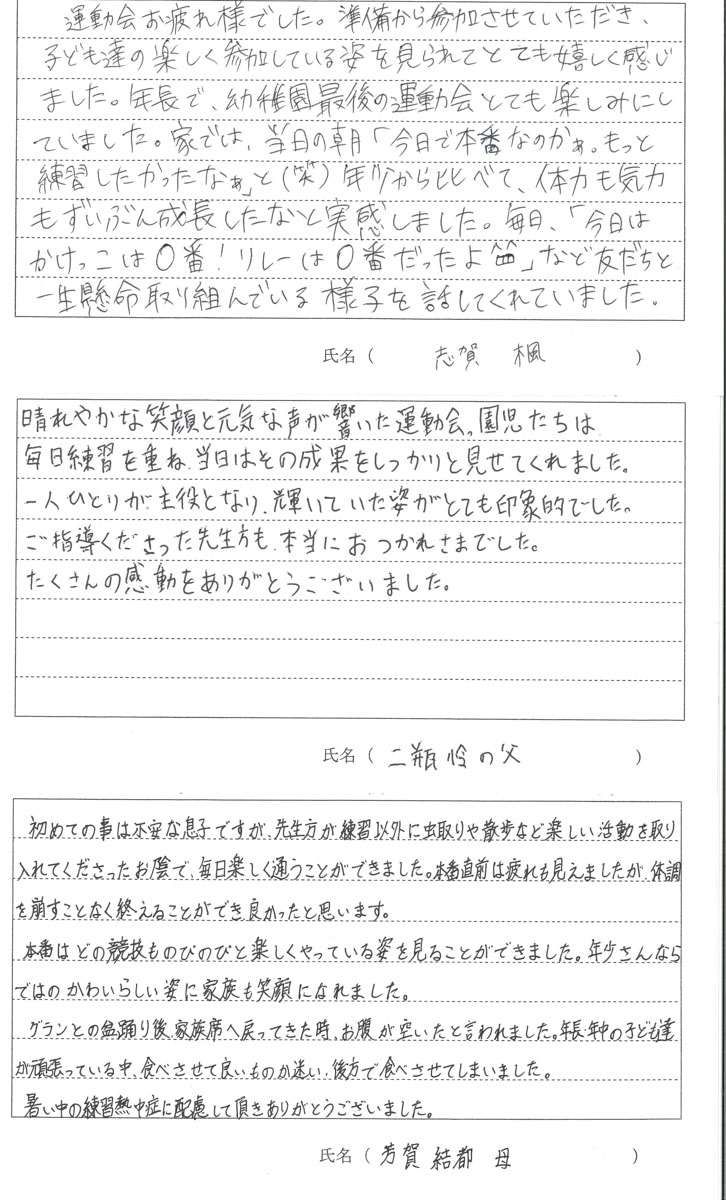 運動会お疲れ様でした。準備から参加させていただき、
子ども達の楽しく参加している姿を見られてとても嬉しく感じ
ました。年長で、幼稚園最後の運動会とても楽しみにし
ていました。家では、当日の朝「今日で本番なのかぁ。もっと
練習したかったなぁ」と(笑)年少から比べて、体力も気力
もずいぶん成長したなと実感しました。毎日、「今日は
かけっこは〇番!リレーは〇番だったよ」など友だちと
一生懸命取り組んでいる様子を話してくれていました。
氏名( 志賀 楓 )
晴れやかな笑顔と元気な声が響いた運動会。園児たちは
毎日練習を重ね、当日はその成果をしっかりと見せてくれました。
一人ひとりが主役となり、輝いていた姿がとても印象的でした。
ご指導くださった先生方も、本当におつかれさまでした。
たくさんの感動をありがとうございました。
氏名( 二瓶 怜の父 )
初めての事は不安な息子ですが、先生方が練習以外に虫取りや散歩など楽しい活動を取り
入れてくださったお陰で、毎日楽しく通うことができました。本番直前は疲れも見えましたが、体調
を崩すことなく終えることができ良かったと思います。
本番はどの競技ものびのびと楽しくやっている姿を見ることができました。年少さんなら
ではのかわいらしい姿に家族も笑顔になれました。
グランとの盆踊り後、家族席へ戻ってきた時、お腹が空いたと言われました。年長年中の子ども達
が頑張っている中、食べさせて良いものか迷い、後方で食べさせてしまいました。
暑い中の練習熱中症に配慮して頂きありがとうございました。
氏名( 芳賀 結都 母 )